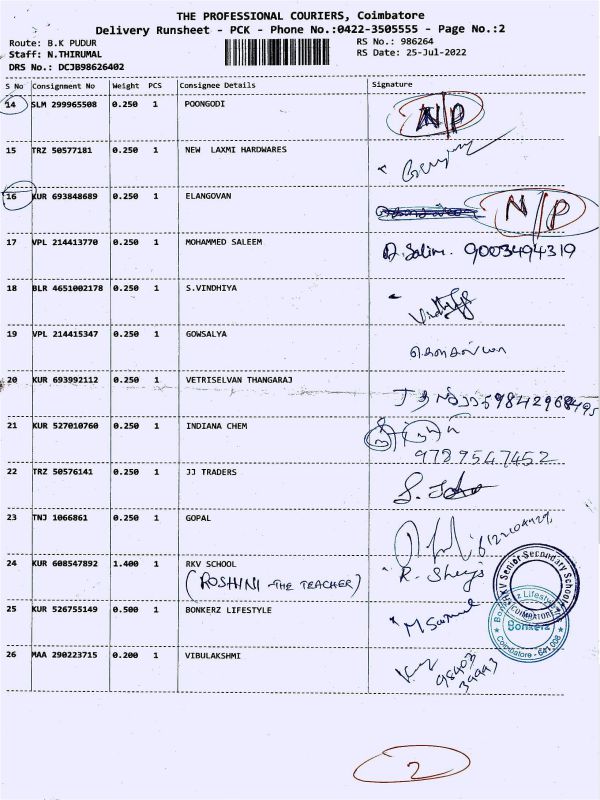 THE PROFESSIONAL COURIERS, Coimbatore
Delivery Runsheet - PCK - Phone No.:0422-3505555 - Page No.:2
Route: B.K PUDUR
RS No.: 986264
Staff: N.THIRUMAL
RS Date: 25-Jul-2022
DRS No.: DCJB98626402
S No Consignment No Weight PCS Consignee Details Signature
14 SLM 299965508 0.250 1 POONGODI N/P
15 TRZ 50577181 0.250 1 NEW LAXMI HARDWARES
16 KUR 693848689 0.250 1 ELANGOVAN N/P
17 VPL 214413770 0.250 1 MOHAMMED SALEEM D.Salim. 9003494319
18 BLR 4651002178 0.250 1 S.VINDHIYA
19 VPL 214415347 0.250 1 GOWSALYA கௌசல்யா
20 KUR 693992112 0.250 1 VETRISELVAN THANGARAJ
21 KUR 527010760 0.250 1 INDIANA CHEM
9789547452
22 TRZ 50576141 0.250 1 JJ TRADERS
23 TNJ 1066861 0.250 1 GOPAL
24 KUR 608547892 1.400 1 RKV SCHOOL
(ROSHINI -THE TEACHER)
RKV Senior Secondary School
COIMBATORE
25 KUR 526755149 0.500 1 BONKERZ LIFESTYLE
Bonkerz Lifestyle
Bonkerz
Coimbatore - 641 008
26 MAA 290223715 0.200 1 VIBULAKSHMI
98403
39993
2